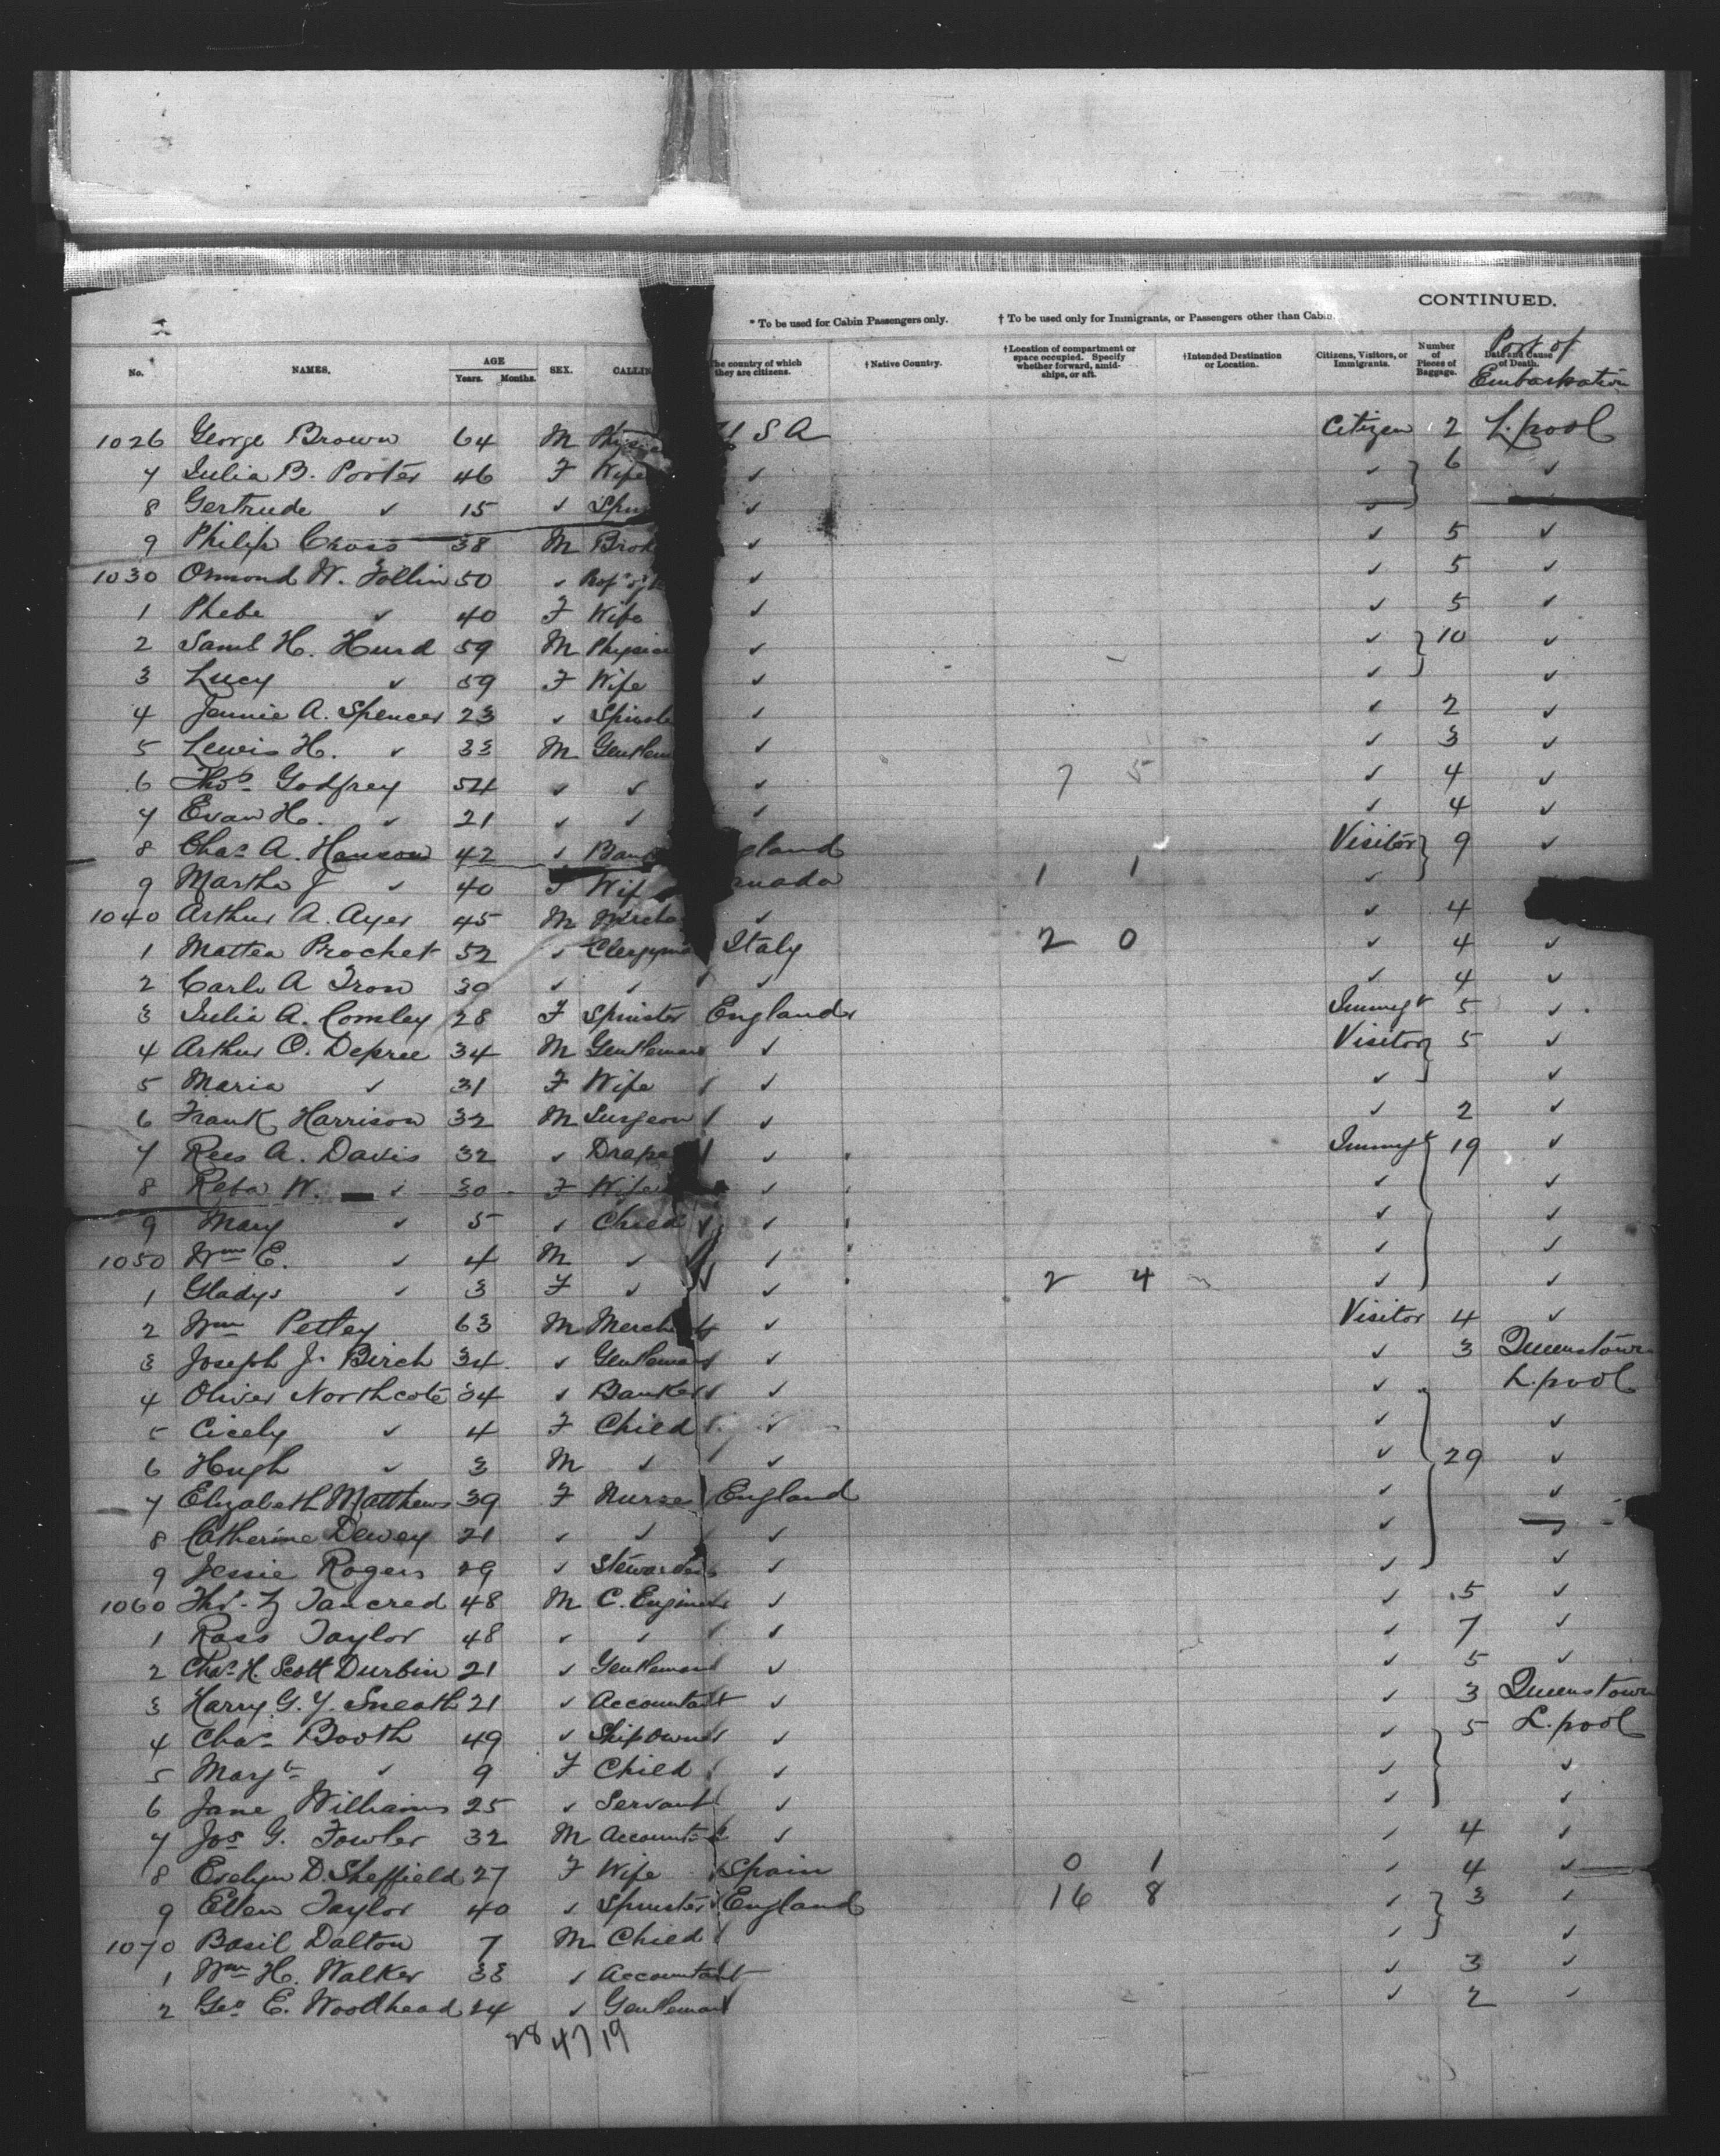 CONTINUED.
* To be used for Cabin Passengers only. † To be used only for Immigrants, or Passengers other than Cabin.
No. NAMES. AGE Years. Months. SEX. CALLIN The country of which they are citizens. †Native Country. †Location of compartment or space occupied. Specify whether forward, amidships, or aft. †Intended Destination or Location. Citizens, Visitors, or Immigrants. Number of Pieces of Baggage. Date and Cause of Death. Port of Embarkation
1026 George Brown 64 M U S A Citizen 2 L.pool
7 Julia B. Porter 46 F Wife ✓ ✓ 6 ✓
8 Gertrude ✓ 15 ✓ Spin ✓ ✓
9 Philip Cross 38 M Brok ✓ ✓ 5 ✓
1030 Ormond W. Follin 50 ✓ ✓ ✓ 5 ✓
1 Phebe ✓ 40 F Wife ✓ ✓ 5 ✓
2 Saml H. Hurd 59 M Physici ✓ ✓ 10 ✓
3 Lucy ✓ 59 F Wife ✓ ✓ ✓
4 Jennie A. Spencer 23 ✓ Spinste ✓ ✓ 2 ✓
5 Lewis H. ✓ 33 M Gentlem ✓ ✓ 3 ✓
6 Thos Godfrey 54 ✓ ✓ ✓ 7 5 ✓ 4 ✓
7 Evan H. ✓ 21 ✓ ✓ ✓ ✓ 4 ✓
8 Chas A. Hanson 42 ✓ Bank gland Visitor 9 ✓
9 Martha J ✓ 40 F Wif anada 1 1 ✓
1040 Arthur A. Ayer 45 M Mercha ✓ ✓ 4
1 Mattea Prochet 52 ✓ Clergyma Italy 2 0 ✓ 4 ✓
2 Carlo A Tron 39 ✓ ✓ ✓ ✓ 4 ✓
3 Julia A. Comley 28 F Spinster England Immigt 5 ✓
4 Arthur O. Depree 34 M Gentleman ✓ Visitor 5 ✓
5 Maria ✓ 31 F Wife ✓ ✓ ✓
6 Frank Harrison 32 M Surgeon ✓ ✓ 2 ✓
7 Rees A. Davis 32 ✓ Drape ✓ Immigt 19 ✓
8 Reba W. ✓ 30 F Wife ✓ ✓ ✓
9 Mary ✓ 5 ✓ Child ✓ ✓ ✓
1050 Wm E. ✓ 4 M ✓ ✓ ✓ ✓
1 Gladys ✓ 3 F ✓ ✓ 2 4 ✓ ✓
2 Wm Petley 63 M Merch ✓ Visitor 4 ✓
3 Joseph J. Birch 34 ✓ Gentleman ✓ ✓ 3 Queenstown
4 Oliver Northcote 34 ✓ Banker ✓ ✓ L.pool
5 Cicely ✓ 4 F Child ✓ ✓ ✓
6 Hugh ✓ 3 M ✓ ✓ ✓ 29 ✓
7 Elizabeth Matthews 39 F Nurse England ✓ ✓
8 Catherine Dewey 21 ✓ ✓ ✓ ✓ ✓
9 Jessie Rogers 29 ✓ Stewardess ✓ ✓ ✓
1060 Tancred 48 M C. Engineer ✓ ✓ 5 ✓
1 Ross Taylor 48 ✓ ✓ ✓ ✓ 7 ✓
2 Chas H. Scott Durbin 21 ✓ Gentleman ✓ ✓ 5 ✓
3 Harry G. Y. Sneath 21 ✓ Accountant ✓ ✓ 3 Queenstown
4 Chas Booth 49 ✓ Shipowner ✓ ✓ 5 L.pool
5 Margt ✓ 9 F Child ✓ ✓ ✓
6 Jane Williams 25 ✓ Servant ✓ ✓ ✓
7 Jos G. Fowler 32 M Accountant ✓ ✓ 4 ✓
8 Evelyn D. Sheffield 27 F Wife Spain 0 1 ✓ 4 ✓
9 Ellen Taylor 40 ✓ Spinster England 16 8 ✓ 3 ✓
1070 Basil Dalton 7 M Child ✓ ✓
1 Wm H. Walker 33 ✓ Accountant ✓ 3 ✓
2 Geo E. Woodhead 24 ✓ Gentleman ✓ 2 ✓
28 47 19